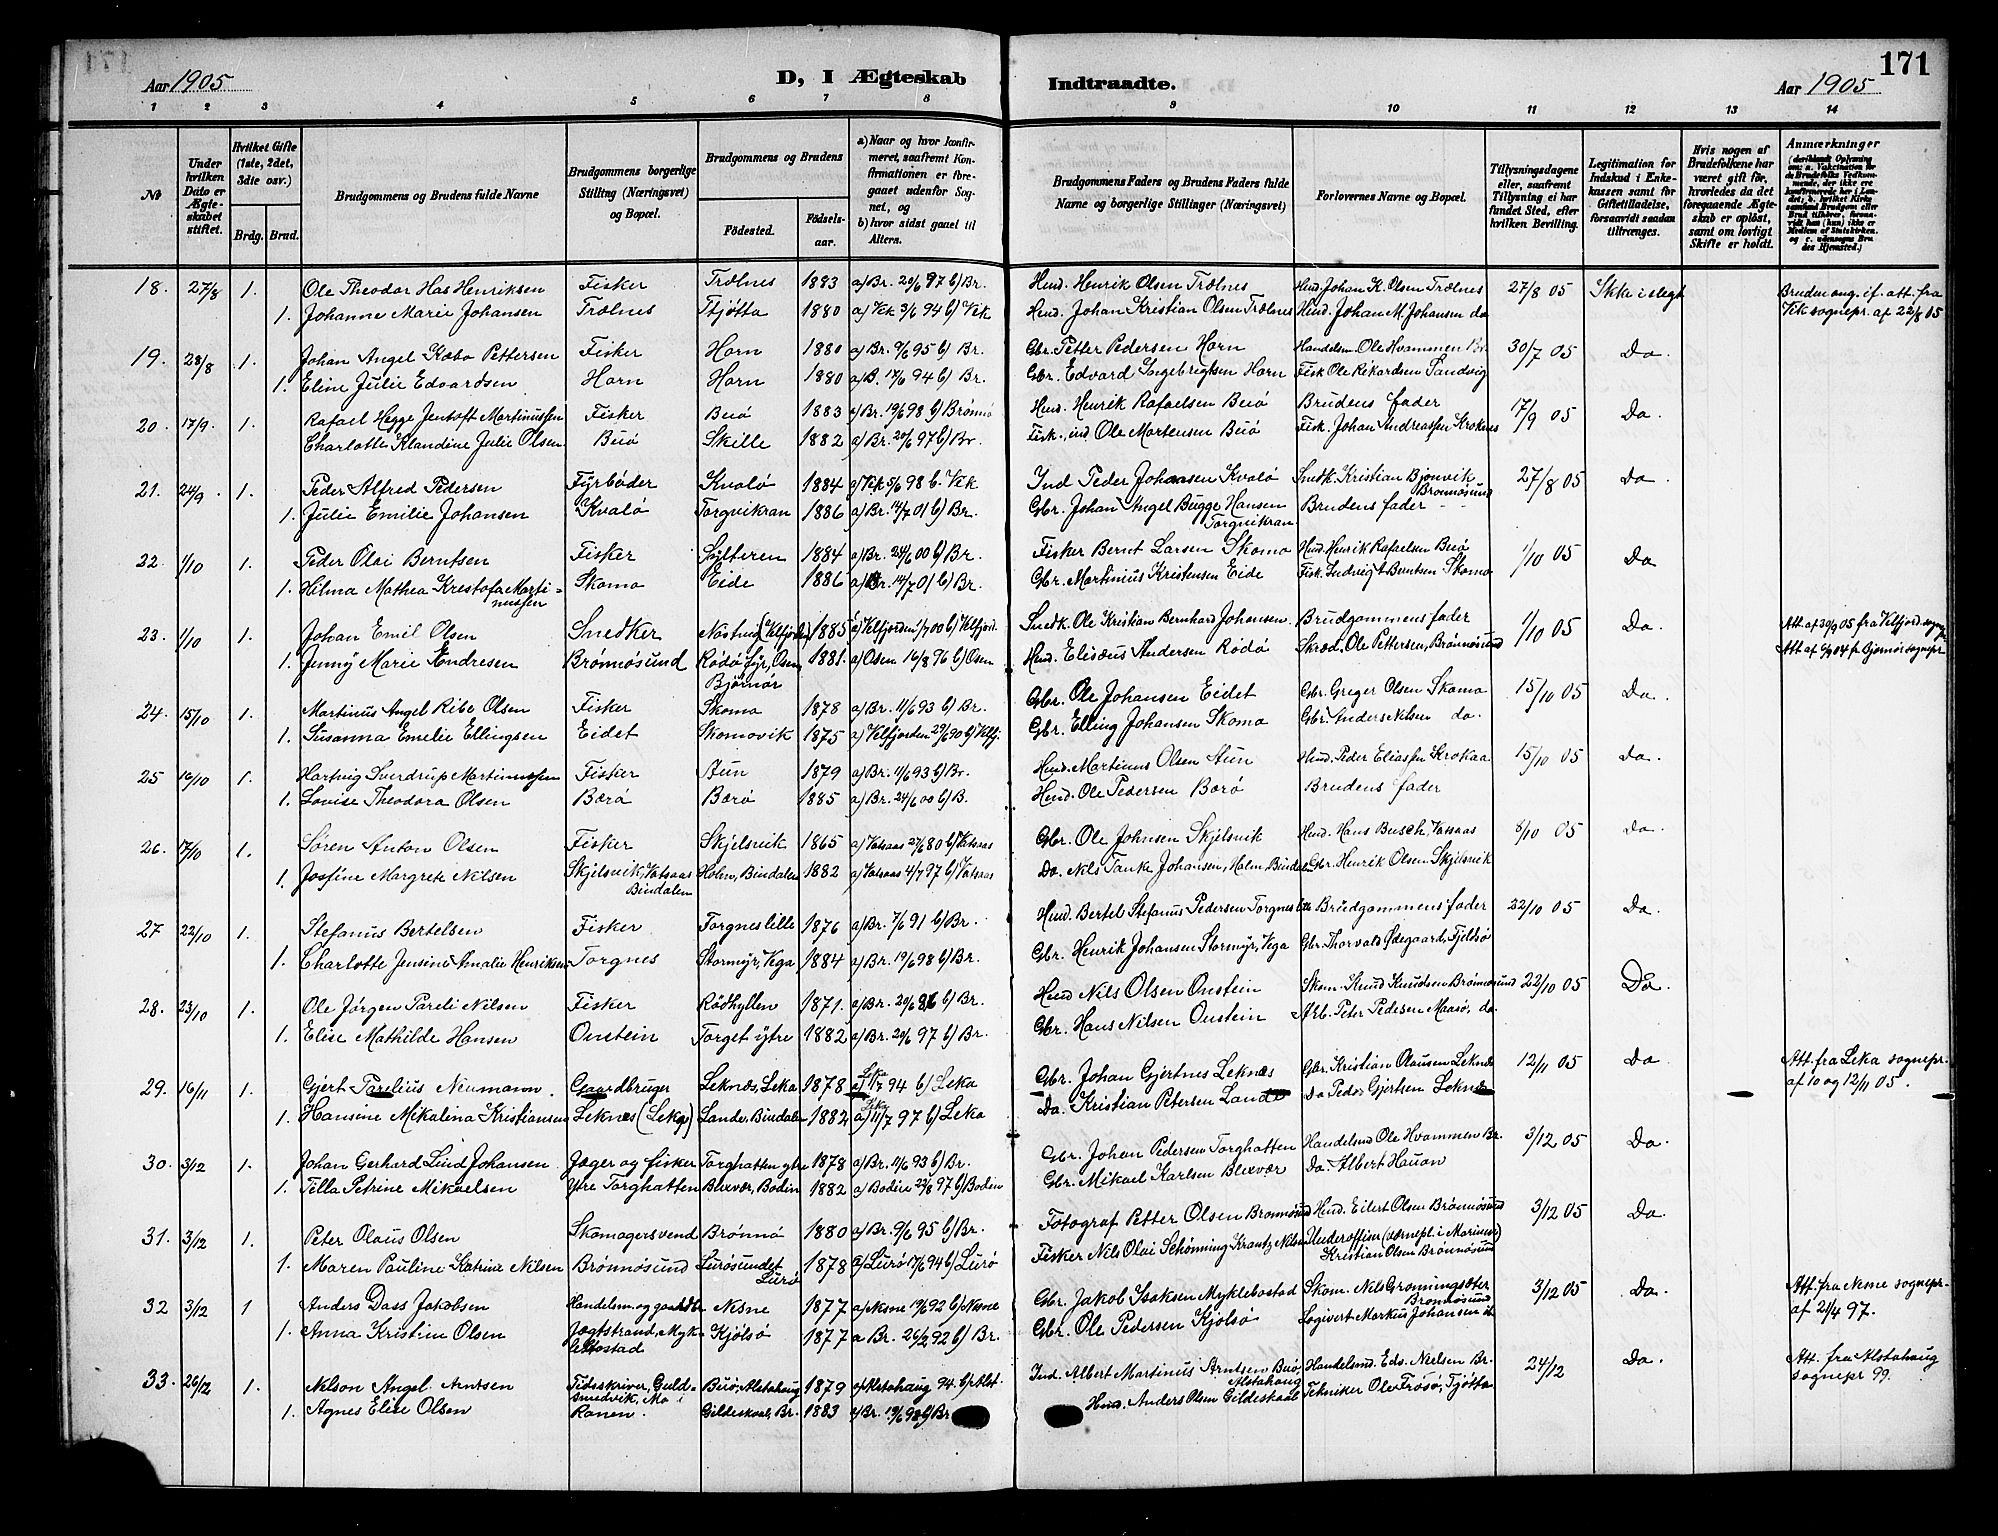 171
Aar 1905 D, I Ægteskab Indtraadte. Aar 1905
1 2 3 4 5 6 7 8 9 10 11 12 13 14
No
Under hvilken Dato er Ægteskabet stiftet.
Hvilket Gifte (1ste, 2det, 3die osv.)
Brdg. Brud.
Brudgommens og Brudens fulde Navne
Brudgommens borgerlige Stilling (Næringsvei) og Bopæl.
Brudgommens og Brudens
Fødested. Fødselsaar.
a) Naar og hvor konfirmeret, saafremt Konfirmationen er foregaaet udenfor Sognet, og b) hvor sidst gaaet til Alters.
Brudgommens Faders og Brudens Faders fulde Navne og borgerlige Stillinger (Næringsvei)
Forlovernes Navne og Bopæl.
Tillysningsdagene eller, saafremt Tillysning ei har fundet Sted, efter hvilken Bevilling.
Legitimation for Indskud i Enkekassen samt for Giftetilladelse, forsaavidt saadan tiltrænges.
Hvis nogen af Brudefolkene har været gift før, hvorledes da det foregaaende Ægteskab er opløst, samt om lovligt Skifte er holdt.
Anmærkninger
18. 27/8 1. Ole Theodor Has Henriksen Fisker Trælnes 1883 a) Br. 20/6 97 b) Br. Husd. Henrik Olsen Trælnes Husd. Johan K. Olsen Trælnes 27/8 05 Ikke i slegt Bruden ang. if. att. fra
1. Johanne Marie Johansen Trælnes Tjøtta 1880 a) Vik 3/6 94 b) Vik Husd. Johan Kristian Olsen Trælnes Husd. Johan M. Johansen do Vik sognepr. af 22/8 05
19. 28/8 1. Johan Angel Kæbo Pettersen Fisker Horn 1880 a) Br. 9/6 95 b) Br. Gbr. Petter Pedersen Horn Handelsm. Ole Hvammen Br. 30/7 05 Do
1. Eline Julie Edvardsen Horn Horn 1880 a) B. 17/6 94 b) Br. Gbr. Edvard Ingebrigtsen Horn Fisk. Ole Rikardsen Sandvig
20. 17/9. 1. Rafael Hegge Jentoft Martinussen Fisker Buø 1883 a) Br. 19/6 98 b) Brønnø Husd. Henrik Rafaelsen Buø Brudens fader 17/9 05 Do.
1. Charlotte Klandine Julie Olsen Buø Skille 1882 a) Br. 20/6 97 b) Br. Fisk., ind. Ole Mortensen Buø Fisk. Johan Andreassen Kroknes
21. 24/9 1. Peder Alfred Pedersen Fyrbøder Kvalø 1884 a) Vik 5/6 98 b) Vik Ind Peder Johansen Kvalø Snedk. Kristian Bjønvik Brønnøsund 27/8 05 Do
1. Julie Emilie Johansen Kvalø Torgvikran 1886 a) Br. 14/7 01 b) Br. Gbr. Johan Angel Bugge Hansen Torgvikran Brudens fader
22. 1/10 1. Peder Olai Berntsen Fisker Sylteren 1884 a) Br. 24/6 00 b) Br. Fisker Bernt Larsen Skomo Husd. Henrik Rafaelsen Buø 1/10 05 Do
1. Hilma Mathea Kristofa Martinussen Skomo Eide 1886 a) Br. 14/7 01 b) Br. Gbr. Martinius Kristensen Eide Fisk. Ludvig Berntsen Skomo
23. 1/10 1. Johan Emil Olsen Snedker Nøstvig (Velfjorden) 1885 a) Velfjorden 1/7 00 b) Velfjord. Snedk. Ole Kristian Bernhard Johansen Brudgommens fader 1/10 05 Do. Att. af 30/9 05 fra Velfjord sognepr.
1. Jenny Marie Andresen Brønnøsund Rødø fyr, Osen Bjørnør 1881. a) Osen 16/8 96 b) Osen Husd. Elisæus Andersen Rødø Skræd. Ole Pettersen, Brønnøsund Att af 6/9 04 fr. Bjørnør sognepr
24. 15/10 1. Martinus Angel Ribe Olsen Fisker Skomo 1878 a) Br. 11/6 93 b) Br. Gbr. Ole Johansen Eidet Gbr. Greger Olsen Skomo 15/10 05 Do.
1. Susanna Emelie Ellingsen Eidet Skomovik 1875 a) Velfjorden 29/6 90 b) Velfj. Gbr. Elling Johansen Skomo Gbr. Anders Nilsen do.
25 16/10 1. Hartvig Sverdrup Martinussen Fisker Aun 1879 a) Br. 11/6 93 b) Br. Husd. Martinus Olsen Aun Husd. Peder Eliassen Krokaa 15/10 05 Do.
1. Lovise Theodora Olsen Bærø Bærø 1885 a) Br. 24/6 00 b) B. Husd. Ole Pedersen Børø Brudens fader
26. 17/10 1. Søren Anton Olsen Fisker Skjelsvik 1865 a) Vatsaas 27/6 80 b) Vatsaas Gbr. Ole Johnsen Skjelsvik Husd. Hans Busch, Vatsaas 8/10 05 Do.
1. Josefine Margrete Nilsen Skjelsvik, Vatsaas Bindalen Holm, Bindalen 1882 a) Vatsaas 4/7 97 b) Vatsaas Do. Nils Tanke Johansen, Holm Bindalen Gbr. Henrik Olsen Skjelsvik
27 22/10 1. Stefanus Bertelsen Fisker Torgnes lille 1876 a) Br. 7/6 91 b) Br. Husd. Bertel Stefanus Pedersen Torgnes lille Brudgommens fader 22/10 05 Do.
1. Charlotte Jensine Amalie Henriksen Torgnes Stormyr, Vega 1884 a) Br. 19/6 98 b) Br. Gbr. Henrik Johansen Stormyr, Vega Gbr. Thorvald Ødegaard, Fjeldsø
28. 23/10 1. Ole Jørgen Pareli Nilsen Fisker Rødhyllen 1871. a) Br. 20/6 86 b) Br. Husd Nils Olsen Onstein Skom. Knud Knudsen Brønnøsund 22/10 05 Do
1. Elise Mathilde Hansen Onstein Torget ytre 1882 a) Br. 20/6 97 b) Br. Gbr. Hans Nilsen Onstein Arb. Peter Pedersen Maasø, do.
29. 16/11 1. Gjert Parelius Neumann. Gaardbruger Leknes, Leka 1878 a) Leka 1/7 94 b) Leka Gbr. Johan Gjertnes Leknes Gbr. Kristian Olausen Leknes 12/11 05 Do Att. fra Leka sognepr.
1. Hansine Mikalina Kristiansen Leknes (Leka) Lande, Bindalen 1882 a) Leka 11/7 97 b) Leka Do. Kristian Petersen Lande Do Peder Gjertsen Leknes af 10 og 12/11 05.
30. 3/12 1. Johan Gerhard Lind Johansen Jæger og fisker Torghatten ytre 1878 a) Br. 11/6 93 b) Br. Gbr. Johan Pedersen Torghatten Handelsmd Ole Hvammen Br. 3/12 05 Do.
1. Tilla Petrine Mikaelsen Ytre Torghatten Blixvær, Bodin 1882 a) Bodin 22/8 97 b) Bodin Gbr. Mikael Karlsen Blixvær Do. Albert Hauan
31. 3/12 1. Peter Olaus Olsen Skomagersvend Brønnø 1880 a) Br. 9/6 95 b) Br. Fotograf Petter Olsen Brønnøsund Husd. Eilert Olsen Brønnøsund 3/12 05 Do.
1. Maren Pauline Katrine Nilsen Brønnøsund Lurøsundet Lurø 1878 a) Lurø 17/6 94 b) Lurø Fisker Nils Olai Schønning Krantz Nilsen Underofficer (værnepl. i Marinen) Kristian Olsen Brønnøsund
32 3/12 1 Anders Dass Jakobsen Handelsm. og gaardbr. Nesne 1877 a) Nesne 19/6 92 b) Nesne Gbr. Jakob Isaksen Myklebostad Skom. Nils Grønningsæter Brønnøsund 3/12 05 Do. Att. fra Nesne sognepr.
1. Anna Kristine Olsen Jægtstrand, Myklebostad Kjølsø 1877 a Br. 26/6 92 b) Br. Gbr. Ole Pedersen Kjølsø Logivert Markus Johansen af 21/4 97.
33. 26/12 1. Nelson Angel Arntsen Tideskriver, Guldsmedvik, Mo i Ranen. Buø, Alstahaug 1879 a) Alstahaug 94. b) Alst. Ind. Albert Martinus Arntsen Buø, Alstahaug Handelsmd. Eds. Nielsen Br. 24/12 Do. Att. fra Alstahaug
1. Agnes Elise Olsen Gildeskaal, Br. 1883 a) Br. 19/6 98 b) Br Husd. Anders Olsen Gildeskaal Tekniker Ole Trøsø, Tjøtta sognepr 99.